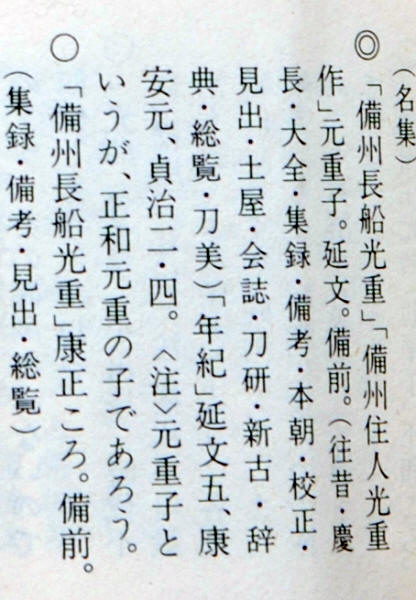 （名集）
◎「備州長船光重」「備州住人光重
作」元重子。延文。備前。（往昔・慶
長・大全・集録・備考・本朝・校正・
見出・土屋・会誌・刀研・新古・辞
典・総覧・刀美）「年紀」延文五、康
安元、貞治二・四。〈注〉元重子と
いうが、正和元重の子であろう。
○「備州長船光重」康正ころ。備前。
（集録・備考・見出・総覧）